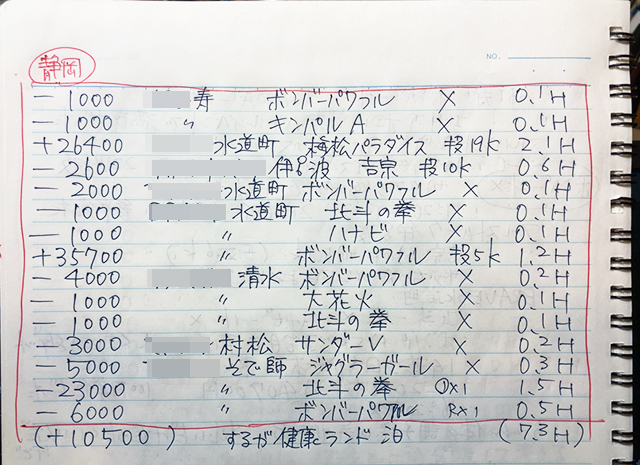 NO.
静岡
-1000 寿 ボンバーパワフル X 0.1H
-1000 〃 キンパルA X 0.1H
+26400 水道町 梅松パラダイス 投19k 2.1H
-2600 伊伝波 吉宗 投10k 0.6H
-2000 水道町 ボンバーパワフル X 0.1H
-1000 水道町 北斗の拳 X 0.1H
-1000 〃 ハナビ X 0.1H
+35700 〃 ボンバーパワフル 投5k 1.2H
-4000 清水 ボンバーパワフル X 0.2H
-1000 〃 大花火 X 0.1H
-1000 〃 北斗の拳 X 0.1H
-3000 村松 サンダーV X 0.2H
-5000 そで師 ジャグラーガール X 0.3H
-23000 〃 北斗の拳 ①X1 1.5H
-6000 〃 ボンバーパワフル RX1 0.5H
(+10500) するが健康ランド 泊 (7.3H)